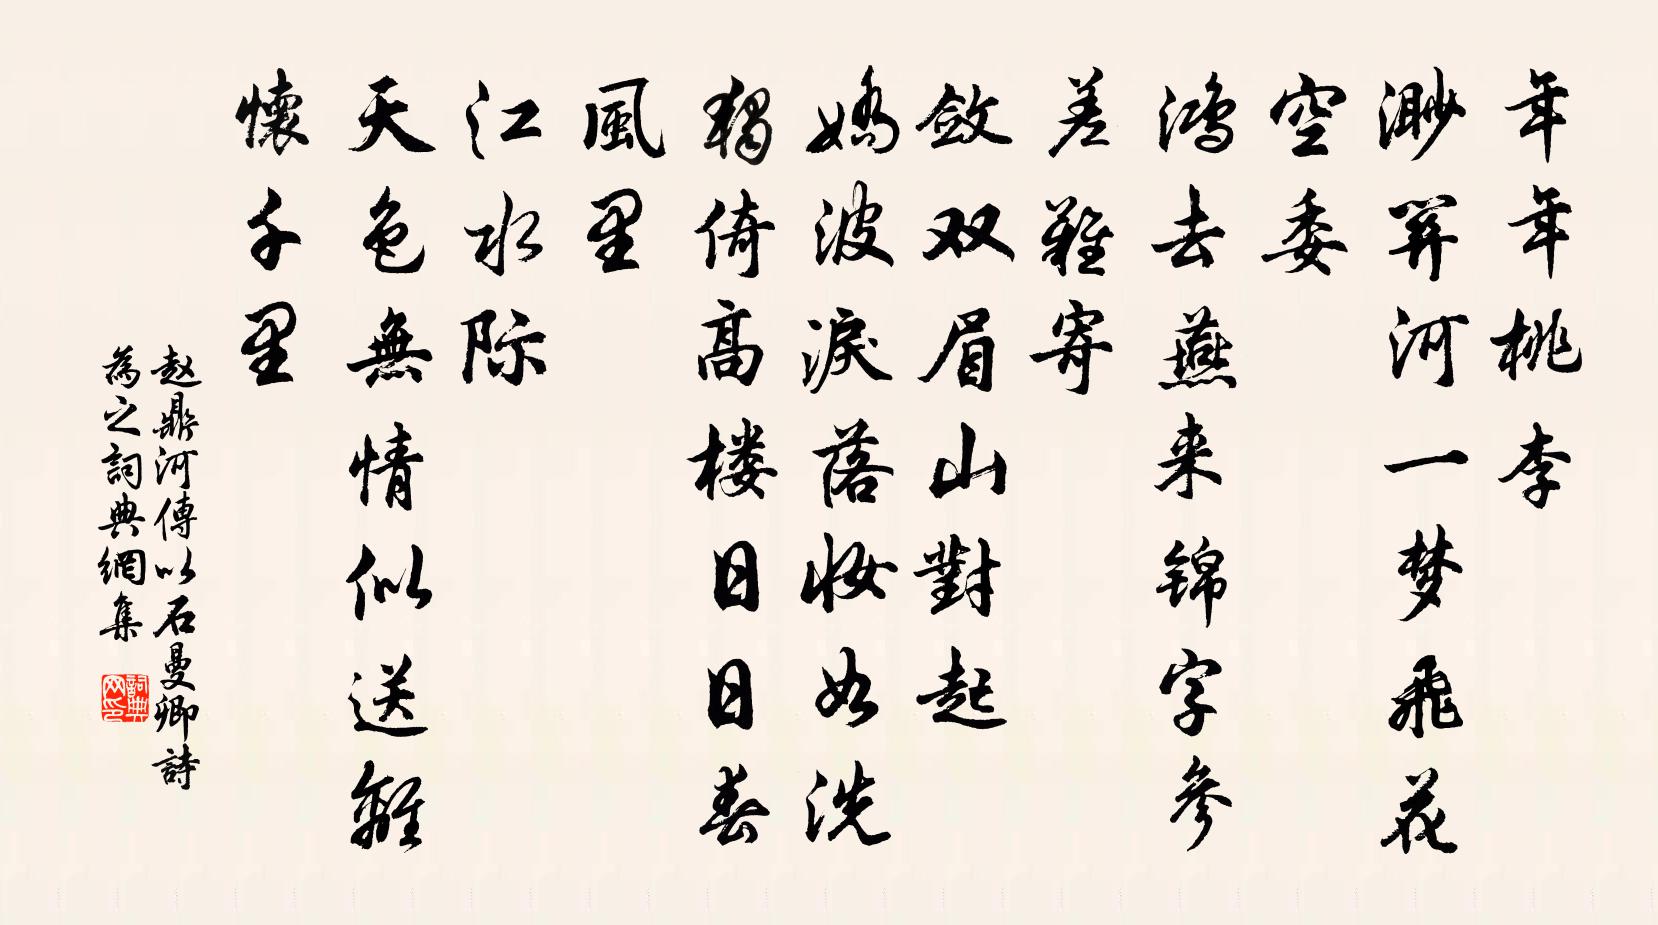 年年桃李
渺関河一梦飛花
空委
鸿去燕来锦字參
差難寄
敛双眉山對起
嬌波淚落妆如洗
獨倚高楼日日春
風里
江水际
天色無情似送離
懷千里
赵鼎河傳以石曼卿詩
為之詞典網集
詞典网印